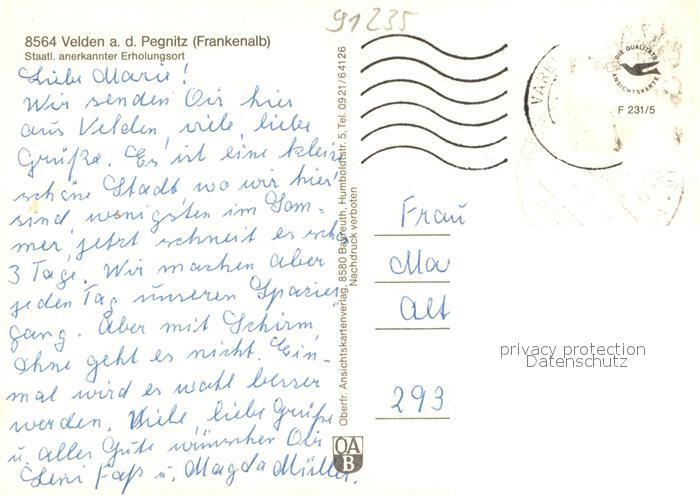 91235
8564 Velden a. d. Pegnitz (Frankenalb)
Staatl. anerkannter Erholungsort
Liebe Marie!
Wir senden Dir hier
aus Velden viele liebe
Grüße. Es ist eine kleine
schöne Stadt wo wir hier
sind wenigsten im Som-
mer, jetzt schneit es scho
3 Tage. Wir machen aber
jeden Tag unseren Spazier
gang. Aber mit Schirm
Ohne geht es nicht. Ein-
mal wird es wohl besser
werden. Viele liebe Grüße
u. alles Gute wünschen Dir
Leni Faß u. Magda Müller.
Oberfr. Ansichtskartenverlag, 8580 Bayreuth, Humboldtstr. 5, Tel. 0921/64126
Nachdruck verboten
OA
B
DIE QUALITÄTS
ANSICHTSKARTE
F 231/5
VAR
Frau
Ma
Alt
293
privacy protection
Datenschutz